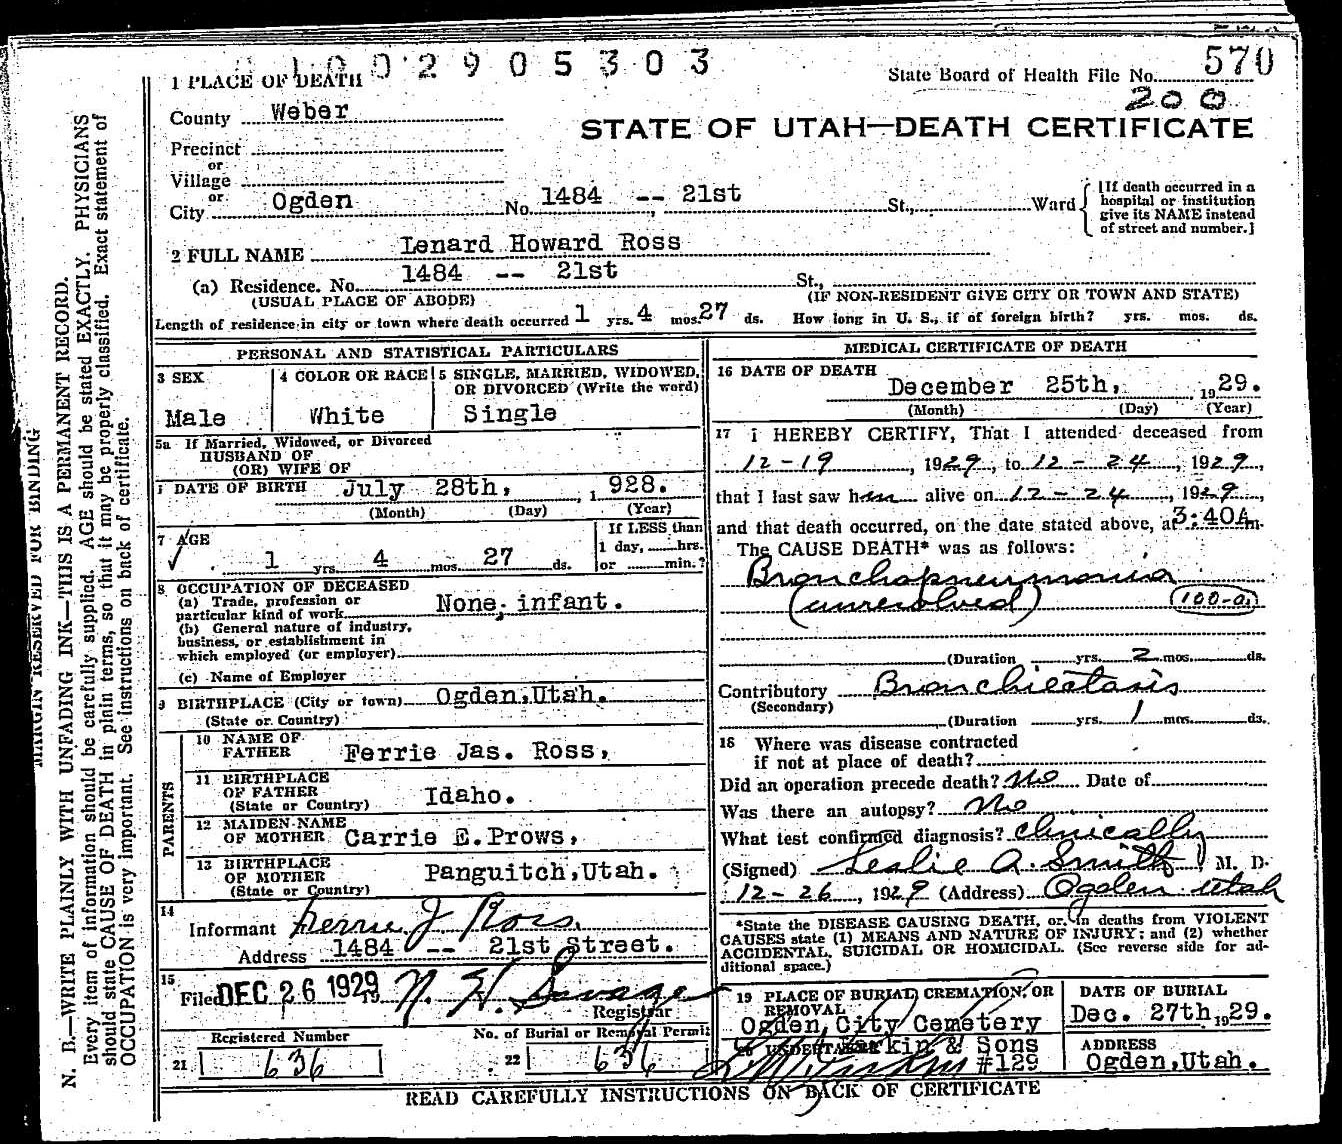 1002905303
570
1 PLACE OF DEATH
State Board of Health File No.
200
County Weber
STATE OF UTAH—DEATH CERTIFICATE
Precinct
or
Village
or
City Ogden No. 1484 -- 21st St., Ward
[If death occurred in a hospital or institution give its NAME instead of street and number.]
2 FULL NAME Lenard Howard Ross
(a) Residence. No. 1484 -- 21st St.,
(USUAL PLACE OF ABODE) (IF NON-RESIDENT GIVE CITY OR TOWN AND STATE)
Length of residence in city or town where death occurred 1 yrs. 4 mos. 27 ds. How long in U. S., if of foreign birth? yrs. mos. ds.
PERSONAL AND STATISTICAL PARTICULARS
3 SEX
Male
4 COLOR OR RACE
White
5 SINGLE, MARRIED, WIDOWED, OR DIVORCED (Write the word)
Single
5a If Married, Widowed, or Divorced
HUSBAND OF
(OR) WIFE OF
DATE OF BIRTH July 28th, 1928.
(Month) (Day) (Year)
7 AGE
1 yrs. 4 mos. 27 ds.
If LESS than
1 day, hrs.
or min.?
8 OCCUPATION OF DECEASED
(a) Trade, profession or
particular kind of work None. infant.
(b) General nature of industry,
business, or establishment in
which employed (or employer)
(c) Name of Employer
9 BIRTHPLACE (City or town) Ogden,Utah.
(State or Country)
PARENTS
10 NAME OF FATHER Ferrie Jas. Ross,
11 BIRTHPLACE OF FATHER Idaho.
(State or Country)
12 MAIDEN NAME OF MOTHER Carrie E.Prows,
13 BIRTHPLACE OF MOTHER Panguitch,Utah.
(State or Country)
14
Informant Ferrie J Ross.
Address 1484 -- 21st Street.
15
Filed DEC 26 1929 19 N. H. Savage
Registrar
Registered Number
21 636
No. of Burial or Removal Permit
22 636
MEDICAL CERTIFICATE OF DEATH
16 DATE OF DEATH
December 25th, 1929.
(Month) (Day) (Year)
17 I HEREBY CERTIFY, That I attended deceased from
12-19, 1929, to 12-24, 1929,
that I last saw him alive on 12-24, 1929,
and that death occurred, on the date stated above, at 3:40A.m.
The CAUSE DEATH* was as follows:
Bronchopneumonia
(unresolved) 100-a
(Duration yrs. 2 mos. ds.
Contributory Bronchiectasis
(Secondary)
(Duration yrs. 1 mos. ds.
18 Where was disease contracted
if not at place of death?
Did an operation precede death? No Date of
Was there an autopsy? No
What test confirmed diagnosis? clinically
(Signed) Leslie A. Smith M. D.
12-26, 1929 (Address) Ogden Utah
*State the DISEASE CAUSING DEATH, or in deaths from VIOLENT
CAUSES state (1) MEANS AND NATURE OF INJURY; and (2) whether
ACCIDENTAL, SUICIDAL OR HOMICIDAL. (See reverse side for ad-
ditional space.)
19 PLACE OF BURIAL, CREMATION, OR
REMOVAL
Ogden City Cemetery
DATE OF BURIAL
Dec. 27th, 1929.
20 UNDERTAKER Larkin & Sons
#129
ADDRESS
Ogden,Utah.
READ CAREFULLY INSTRUCTIONS ON BACK OF CERTIFICATE
MARGIN RESERVED FOR BINDING
N. B.—WRITE PLAINLY WITH UNFADING INK—THIS IS A PERMANENT RECORD.
Every item of information should be carefully supplied. AGE should be stated EXACTLY. PHYSICIANS
should state CAUSE OF DEATH in plain terms, so that it may be properly classified. Exact statement of
OCCUPATION is very important. See instructions on back of certificate.